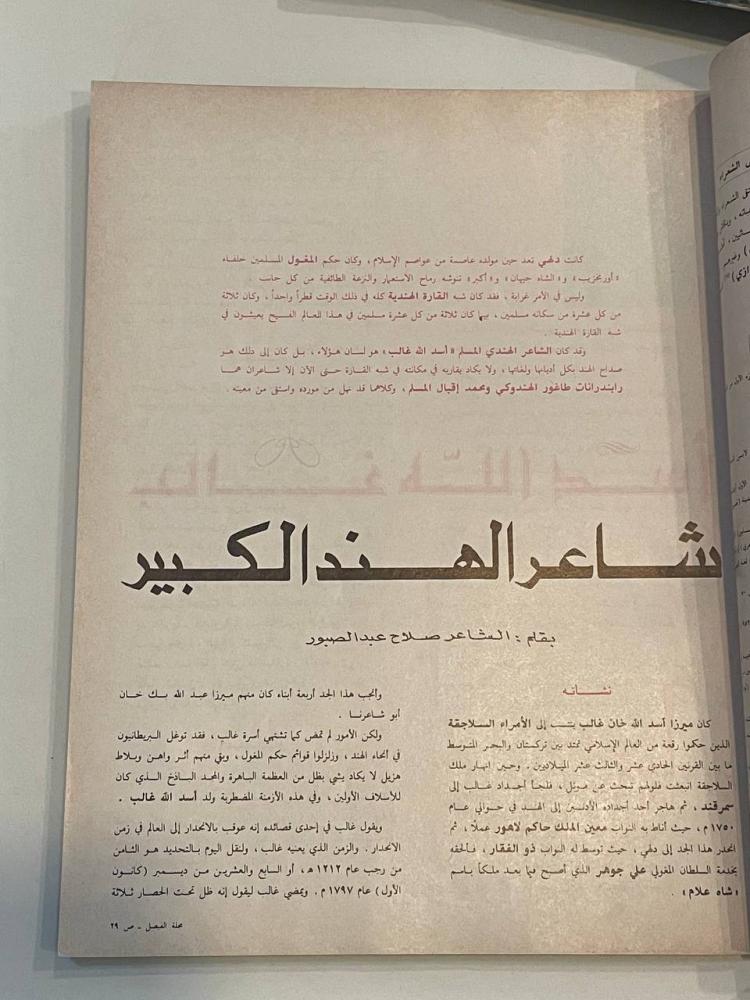 كانت دلهي تعد حين مولده عاصمة من عواصم الإسلام ، وكان حكم المغول المسلمين خلفاء
«أورنجزيب» و«الشاه جيهان» و«أكبر» تنوشه رماح الاستعمار والنزعة الطائفية من كل جانب .
وليس في الأمر غرابة ، فقد كان شبه القارة الهندية كله في ذلك الوقت قطراً واحداً ، وكان ثلاثة
من كل عشرة من سكانه مسلمين ، بينما كان ثلاثة من كل عشرة مسلمين في هذا العالم الفسيح يعيشون في
شبه القارة الهندية .
وقد كان الشاعر الهندي المسلم «أسد الله غالب» هو لسان هؤلاء ، بل كان إلى ذلك هو
صداح الهند بكل أديانها ولغاتها ، ولا يكاد يقاربه في مكانته في شبه القارة حتى الآن إلا شاعران هما
رابندرانات طاغور الهندوكي ومحمد إقبال المسلم ، وكلاهما قد نهل من مورده واستقى من معينه .
أسد الله غالب
شاعر الهند الكبير
بقلم : الشاعر صلاح عبد الصبور
نشأته
كان ميرزا أسد الله خان غالب ينتسب إلى الأمراء السلاجقة
الذين حكموا رقعة من العالم الإسلامي تمتد بين تركستان والبحر المتوسط
ما بين القرنين الحادي عشر والثالث عشر الميلاديين . وحين انهار ملك
السلاجقة انبعثت فلولهم تبحث عن موئل ، فلجأ أجداد غالب إلى
سمرقند ، ثم هاجر أحد أجداده الأدنين إلى الهند في حوالي عام
١٧٥٠ م ، حيث أناط به النواب معين الملك حاكم لاهور عملاً ، ثم
انحدر هذا الجد إلى دلهي ، حيث توسط له النواب ذو الفقار ، فألحقه
بخدمة السلطان المغولي علي جوهر الذي أصبح فيما بعد ملكاً باسم
«شاه علام» .
وأنجب هذا الجد أربعة أبناء كان منهم ميرزا عبد الله بك خان
أبو شاعرنا .
ولكن الأمور لم تمض كما تشتهي أسرة غالب ، فقد توغل البريطانيون
في أنحاء الهند ، وزلزلوا قوائم حكم المغول ، وبقي منهم أثر واهن وبلاط
هزيل لا يكاد يشي بظل من العظمة الباهرة والمجد الباذخ الذي كان
للأسلاف الأولين ، وفي هذه الأزمنة المضطربة ولد أسد الله غالب .
ويقول غالب في إحدى قصائده إنه عوقب بالانحدار إلى العالم في زمن
الانحدار . والزمن الذي يعنيه غالب ، ولنقل اليوم بالتحديد هو الثامن
من رجب عام ١٢١٢ هـ ، أو السابع والعشرين من ديسمبر (كانون
الأول) عام ١٧٩٧ م . ويمضي غالب ليقول إنه ظل تحت الحصار ثلاثة
مجلة الفيصل ـ ص ٢٩